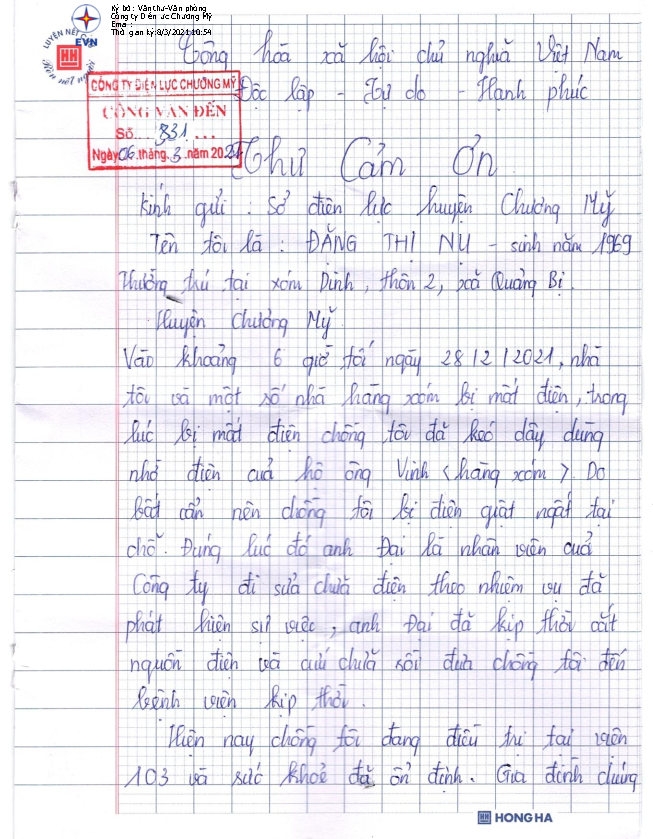 Ký bởi: Văn thư-Văn phòng
Công ty Điện lực Chương Mỹ
Email:
Thời gian ký:8/3/2021 10:54
EVN
CÔNG TY ĐIỆN LỰC CHƯƠNG MỸ
CÔNG VĂN ĐẾN
Số... 331 ...
Ngày 06 tháng. 3 .năm 2021
Cộng hoà xã hội chủ nghĩa Việt Nam
Độc lập - Tự do - Hạnh phúc
Thư Cảm Ơn
Kính gửi. Sở điện lực huyện Chương Mỹ
Tên tôi là : ĐẶNG THỊ NỤ - sinh năm 1969
Thường trú tại xóm Dinh, thôn 2, xã Quảng Bị.
Huyện Chương Mỹ
Vào khoảng 6 giờ tối ngày 28/2/2021, nhà
tôi và một số nhà hàng xóm bị mất điện, trong
lúc bị mất điện chồng tôi đã kéo dây dùng
nhờ điện của hộ ông Vinh (hàng xóm). Do
bất cẩn nên chồng tôi bị điện giật ngất tại
chỗ. Đúng lúc đó anh Đại là nhân viên của
Công ty đi sửa chữa điện theo nhiệm vụ đã
phát hiện sự việc, anh Đại đã kịp thời cắt
nguồn điện và cứu chữa rồi đưa chồng tôi đến
bệnh viện kịp thời.
Hiện nay chồng tôi đang điều trị tại viện
103 và sức khoẻ đã ổn định. Gia đình chúng
HONG HA